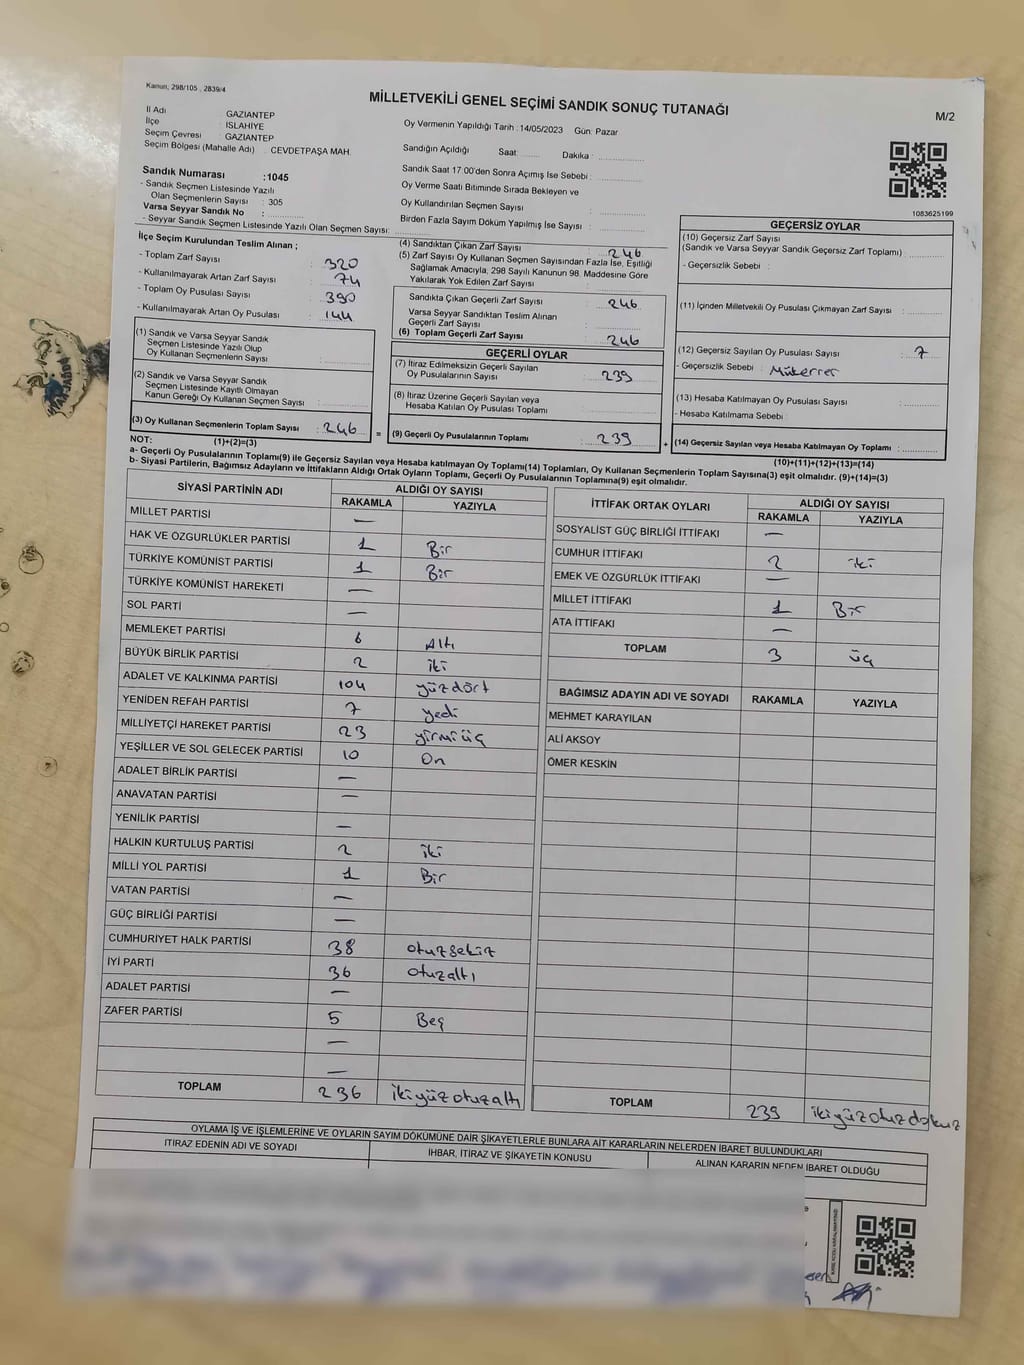 Kanun, 298/105 , 2839/4
MİLLETVEKİLİ GENEL SEÇİMİ SANDIK SONUÇ TUTANAĞI
M/2
İl Adı : GAZİANTEP
İlçe : ISLAHİYE
Seçim Çevresi : GAZİANTEP
Seçim Bölgesi (Mahalle Adı) : CEVDETPAŞA MAH.
Oy Vermenin Yapıldığı Tarih :14/05/2023 Gün: Pazar
Sandığın Açıldığı Saat: Dakika :
Sandık Saat 17.00'den Sonra Açımış İse Sebebi :
Oy Verme Saati Bitiminde Sırada Bekleyen ve
Oy Kullandırılan Seçmen Sayısı :
Birden Fazla Sayım Döküm Yapılmış İse Sayısı :
1083625199
Sandık Numarası :1045
- Sandık Seçmen Listesinde Yazılı
Olan Seçmenlerin Sayısı : 305
Varsa Seyyar Sandık No :
- Seyyar Sandık Seçmen Listesinde Yazılı Olan Seçmen Sayısı:
İlçe Seçim Kurulundan Teslim Alınan ;
- Toplam Zarf Sayısı : 320
- Kullanılmayarak Artan Zarf Sayısı : 74
- Toplam Oy Pusulası Sayısı : 390
- Kullanılmayarak Artan Oy Pusulası : 144
(1) Sandık ve Varsa Seyyar Sandık
Seçmen Listesinde Yazılı Olup
Oy Kullanan Seçmenlerin Sayısı :
(2) Sandık ve Varsa Seyyar Sandık
Seçmen Listesinde Kayıtlı Olmayan
Kanun Gereği Oy Kullanan Seçmen Sayısı :
(3) Oy Kullanan Seçmenlerin Toplam Sayısı : 246
(4) Sandıktan Çıkan Zarf Sayısı : 246
(5) Zarf Sayısı Oy Kullanan Seçmen Sayısından Fazla İse, Eşitliği
Sağlamak Amacıyla, 298 Sayılı Kanunun 98. Maddesine Göre
Yakılarak Yok Edilen Zarf Sayısı :
Sandıkta Çıkan Geçerli Zarf Sayısı : 246
Varsa Seyyar Sandıktan Teslim Alınan
Geçerli Zarf Sayısı :
(6) Toplam Geçerli Zarf Sayısı : 246
GEÇERLİ OYLAR
(7) İtiraz Edilmeksizin Geçerli Sayılan
Oy Pusulalarının Sayısı : 239
(8) İtiraz Üzerine Geçerli Sayılan veya
Hesaba Katılan Oy Pusulası Toplamı :
= (9) Geçerli Oy Pusulalarının Toplamı : 239 +
GEÇERSİZ OYLAR
(10) Geçersiz Zarf Sayısı
(Sandık ve Varsa Seyyar Sandık Geçersiz Zarf Toplamı) :
- Geçersizlik Sebebi :
(11) İçinden Milletvekili Oy Pusulası Çıkmayan Zarf Sayısı :
(12) Geçersiz Sayılan Oy Pusulası Sayısı : 7
- Geçersizlik Sebebi : Mükerrer
(13) Hesaba Katılmayan Oy Pusulası Sayısı :
- Hesaba Katılmama Sebebi :
(14) Geçersiz Sayılan veya Hesaba Katılmayan Oy Toplamı :
NOT: (1)+(2)=(3)
(10)+(11)+(12)+(13)=(14)
a- Geçerli Oy Pusulalarının Toplamı(9) ile Geçersiz Sayılan veya Hesaba katılmayan Oy Toplamı(14) Toplamları, Oy Kullanan Seçmenlerin Toplam Sayısına(3) eşit olmalıdır. (9)+(14)=(3)
b- Siyasi Partilerin, Bağımsız Adayların ve İttifakların Aldığı Ortak Oyların Toplamı, Geçerli Oy Pusulalarının Toplamına(9) eşit olmalıdır.
SİYASİ PARTİNİN ADI ALDIĞI OY SAYISI
RAKAMLA YAZIYLA
MİLLET PARTİSİ —
HAK VE ÖZGÜRLÜKLER PARTİSİ 1 Bir
TÜRKİYE KOMÜNİST PARTİSİ 1 Bir
TÜRKİYE KOMÜNİST HAREKETİ —
SOL PARTİ —
MEMLEKET PARTİSİ 6 Altı
BÜYÜK BİRLİK PARTİSİ 2 iki
ADALET VE KALKINMA PARTİSİ 104 yüzdört
YENİDEN REFAH PARTİSİ 7 yedi
MİLLİYETÇİ HAREKET PARTİSİ 23 yirmiüç
YEŞİLLER VE SOL GELECEK PARTİSİ 10 On
ADALET BİRLİK PARTİSİ —
ANAVATAN PARTİSİ —
YENİLİK PARTİSİ —
HALKIN KURTULUŞ PARTİSİ 2 iki
MİLLİ YOL PARTİSİ 1 Bir
VATAN PARTİSİ —
GÜÇ BİRLİĞİ PARTİSİ —
CUMHURİYET HALK PARTİSİ 38 otuzsekiz
İYİ PARTİ 36 otuzaltı
ADALET PARTİSİ —
ZAFER PARTİSİ 5 Beş
—
—
TOPLAM 236 ikiyüzotuzaltı
İTTİFAK ORTAK OYLARI ALDIĞI OY SAYISI
RAKAMLA YAZIYLA
SOSYALİST GÜÇ BİRLİĞİ İTTİFAKI —
CUMHUR İTTİFAKI 2 iki
EMEK VE ÖZGÜRLÜK İTTİFAKI —
MİLLET İTTİFAKI 1 Bir
ATA İTTİFAKI —
TOPLAM 3 üç
BAĞIMSIZ ADAYIN ADI VE SOYADI RAKAMLA YAZIYLA
MEHMET KARAYILAN
ALİ AKSOY
ÖMER KESKİN
TOPLAM 239 ikiyüzotuzdokuz
OYLAMA İŞ VE İŞLEMLERİNE VE OYLARIN SAYIM DÖKÜMÜNE DAİR ŞİKAYETLERLE BUNLARA AİT KARARLARIN NELERDEN İBARET BULUNDUKLARI
İTİRAZ EDENİN ADI VE SOYADI İHBAR, İTİRAZ VE ŞİKAYETİN KONUSU ALINAN KARARIN NEDEN İBARET OLDUĞU